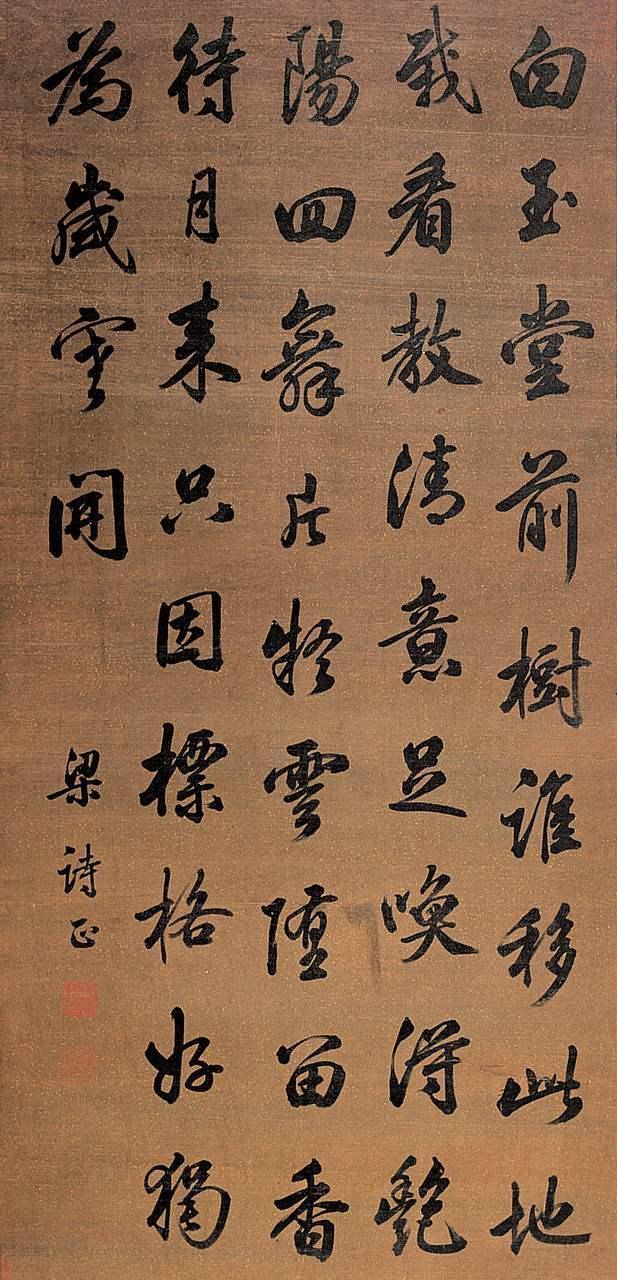 白玉堂前樹誰移此地
栽看教清意足喚得艷
陽回舞片凝雲墮留香
待月來只因標格好獨
為歲寒開
梁詩正